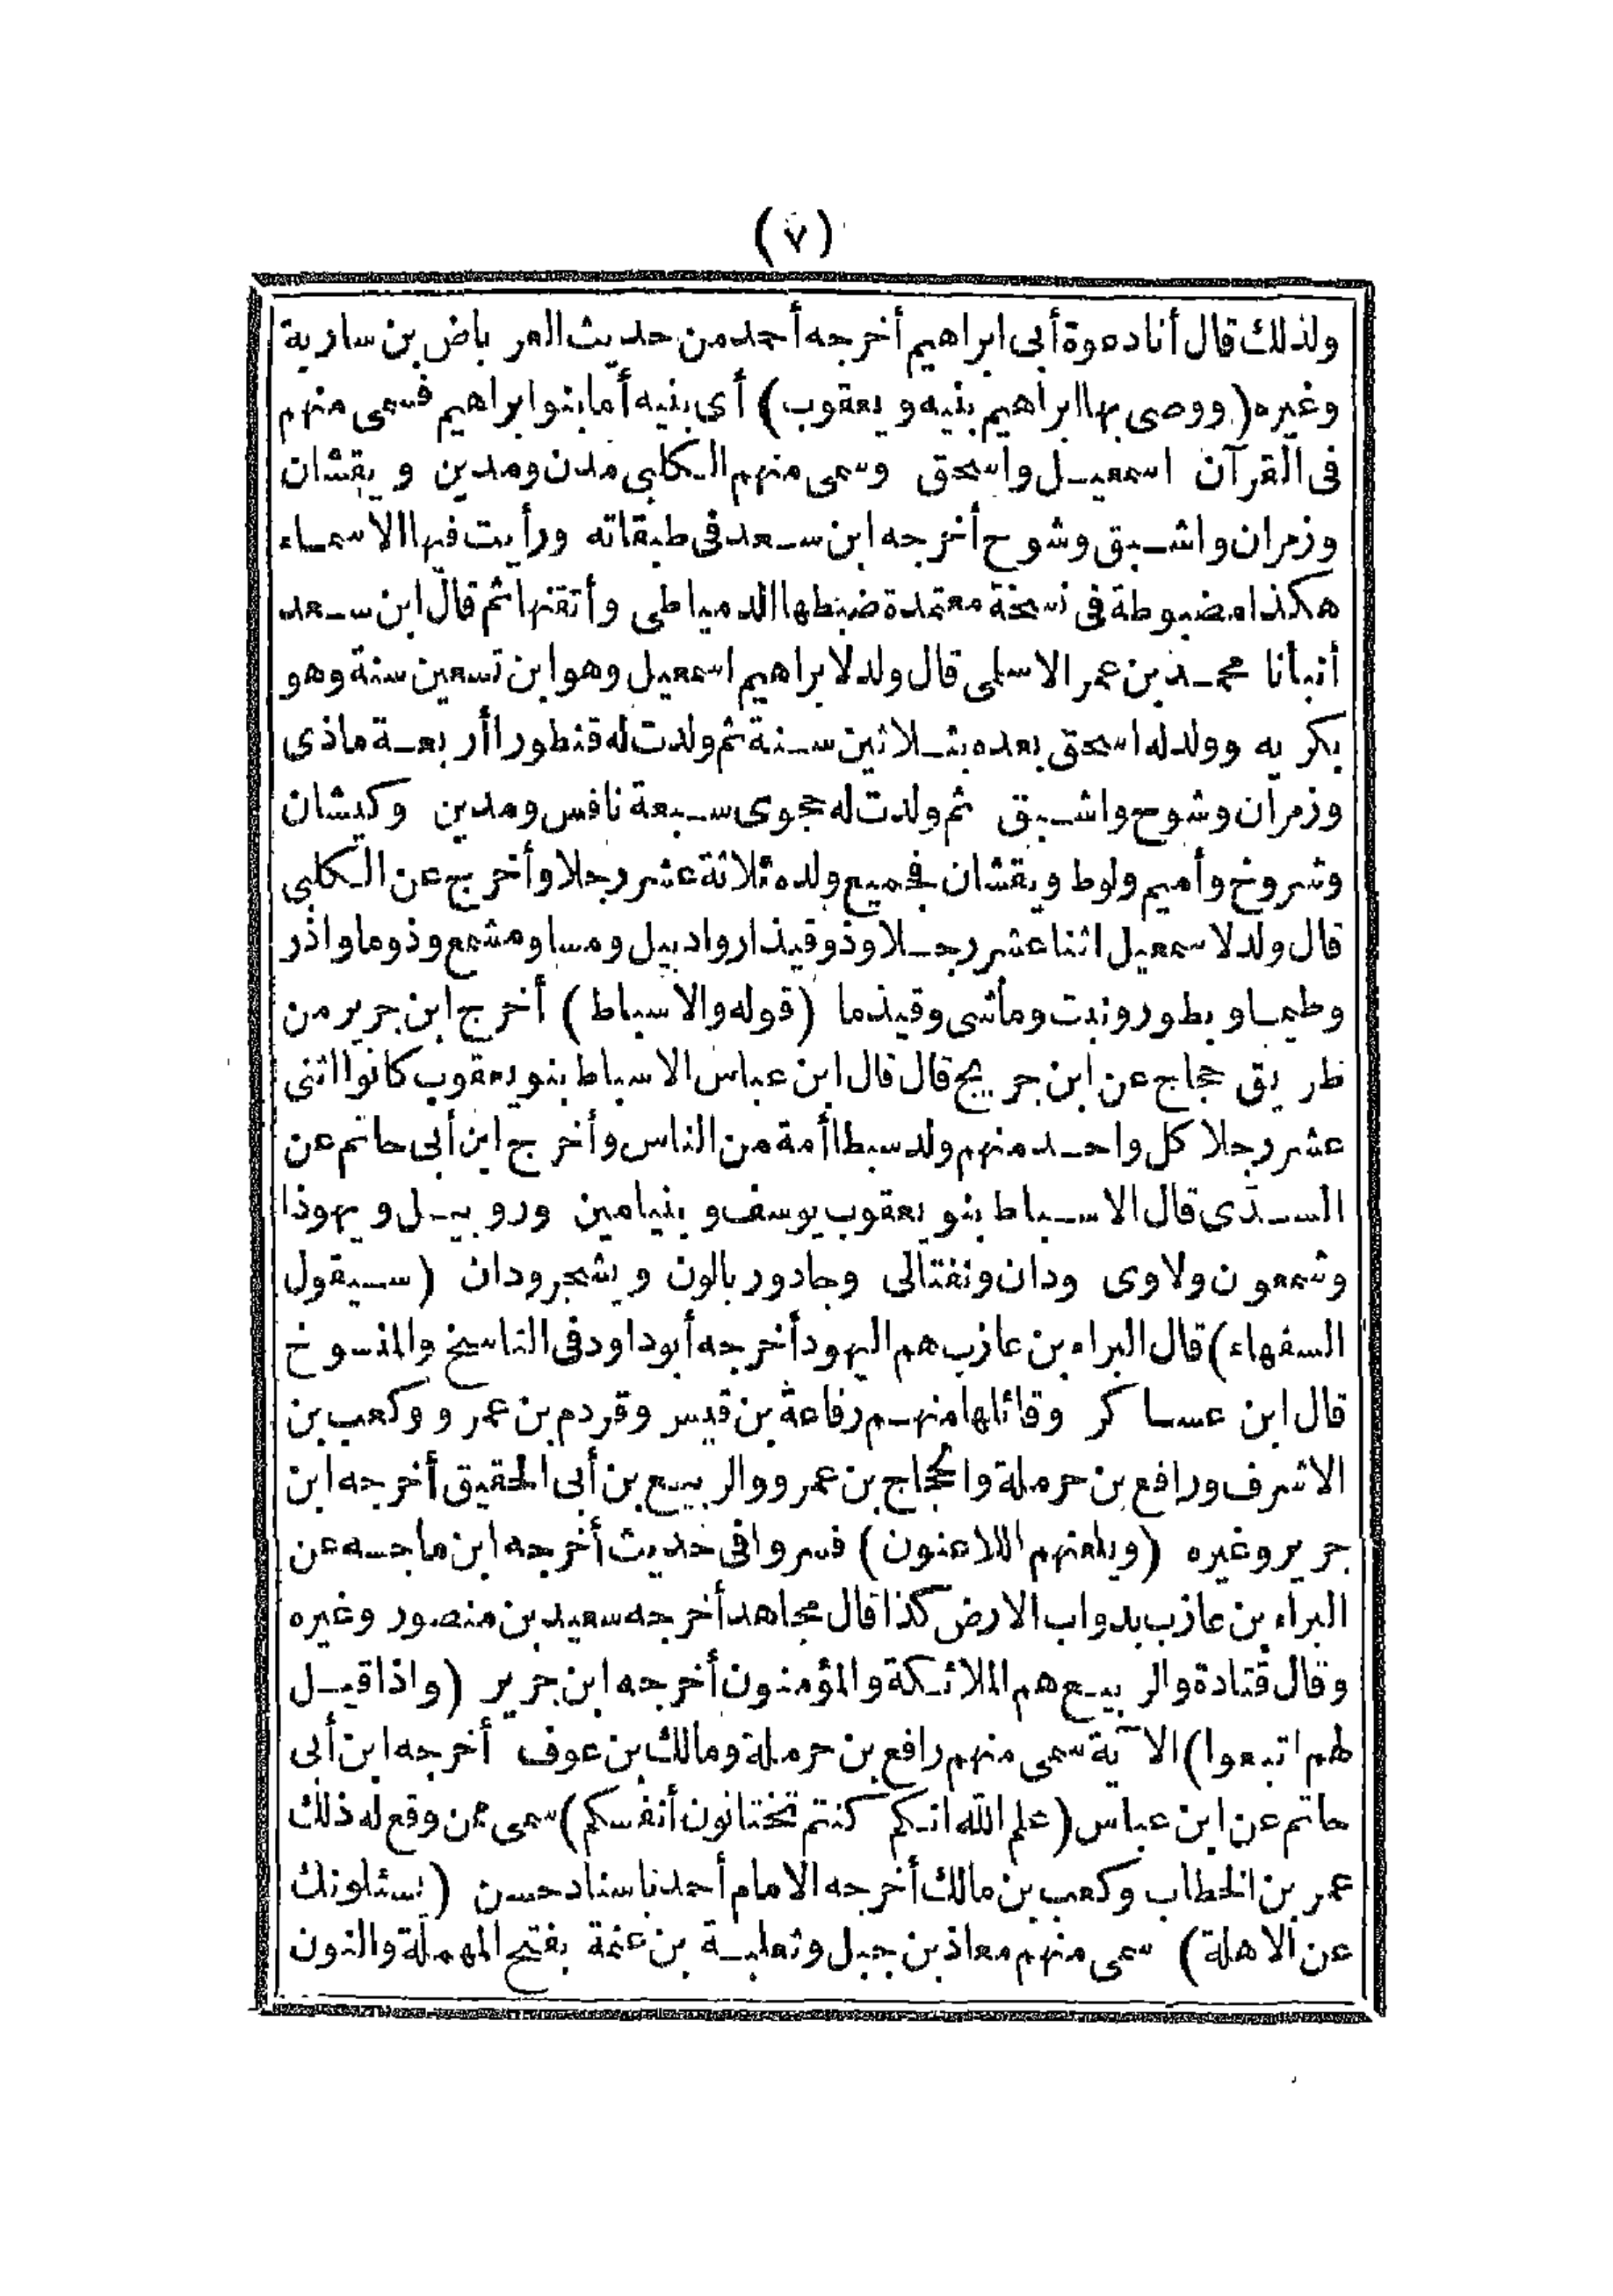 (٧)
ولذلك قال أنا دعوة أبى ابراهيم أخرجه أحمد من حديث العرباض بن سارية
وغيره (ووصى بها ابراهيم بنيه ويعقوب) أى بنيه أما بنو ابراهيم فسمى منهم
فى القرآن اسمعيل واسحق وسمى منهم الكلبى مدن ومدين ويقشان
وزمران واشبق وشوح أخرجه ابن سعد فى طبقاته ورأيت فيها الاسماء
هكذا مضبوطة فى نسخة معتمدة ضبطها الدمياطى وأتقنها ثم قال ابن سعد
أنبأنا محمد بن عمر الاسلمى قال ولد لابراهيم اسمعيل وهو ابن تسعين سنة وهو
بكر به وولد له اسحق بعده بثلاثين سنة ثم ولدت له قنطورا أربعة ماذى
وزمران وشوح واشبق ثم ولدت له حجوى سبعة نافس ومدين وكيشان
وشروخ وأميم ولوط ويقشان فجميع ولده ثلاثة عشر رجلا وأخرج عن الكلبى
قال ولد لاسمعيل اثنا عشر رجلا وذوقيذار وادبيل ومسا ومشمع وذوما واذر
وطيما ويطور ونبت ومأشى وقيذما (قوله والاسباط) أخرج ابن جرير من
طريق حجاج عن ابن جريج قال قال ابن عباس الاسباط بنو يعقوب كانوا اثنى
عشر رجلا كل واحد منهم ولد سبطا أمة من الناس وأخرج ابن أبى حاتم عن
السدّى قال الاسباط بنو يعقوب يوسف وبنيامين وروبيل ويهوذا
وشمعون ولاوى ودان ونفتالى وجاد وربالون ويشجر ودان (سيقول
السفهاء) قال البراء بن عازب هم اليهود أخرجه أبو داود فى الناسخ والمنسوخ
قال ابن عساكر وقائلها منهم رفاعة بن قيس وقردم بن عمرو وكعب بن
الاشرف ورافع بن حرملة والحجاج بن عمرو والربيع بن أبى الحقيق أخرجه ابن
جرير وغيره (ويلعنهم اللاعنون) فسروا فى حديث أخرجه ابن ماجه عن
البراء بن عازب بدواب الارض كذا قال مجاهد أخرجه سعيد بن منصور وغيره
وقال قتادة والربيع هم الملائكة والمؤمنون أخرجه ابن جرير (واذا قيل
لهم اتبعوا) الآية سمى منهم رافع بن حرملة ومالك بن عوف أخرجه ابن أبى
حاتم عن ابن عباس (علم الله انكم كنتم تختانون أنفسكم) سمى ممن وقع له ذلك
عمر بن الخطاب وكعب بن مالك أخرجه الامام أحمد باسناد حسن (يسئلونك
عن الاهلة) سمى منهم معاذ بن جبل وثعلبة بن عنمة بفتح المهملة والنون